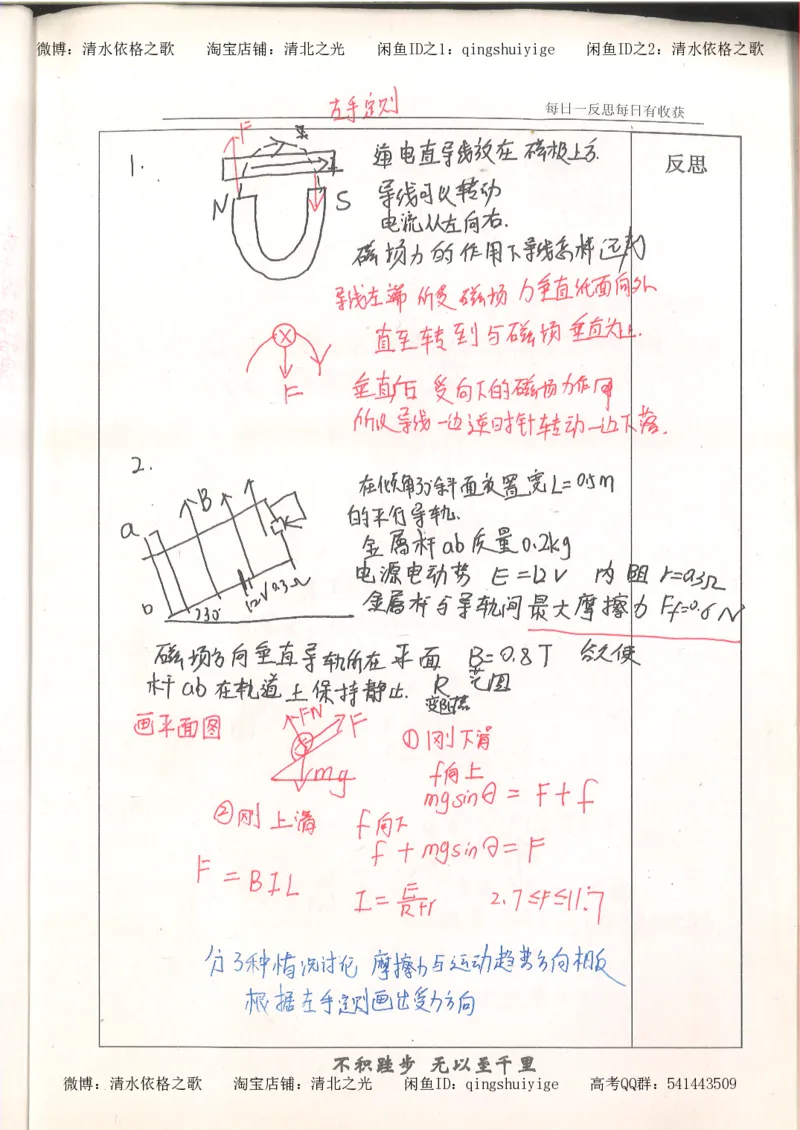 微博：清水依格之歌 淘宝店铺：清北之光 闲鱼ID之1：qingshuiyige 闲鱼ID之2：清水依格之歌
左手定则
每日一反思每日有收获
反思
1.
F
I
N
S
通电直导线放在磁极上方.
导线可以转动
电流从左向右.
磁场力的作用下导线怎样运动
导线左端所受磁场力垂直纸面向外
直至转到与磁场垂直为止.
F
垂直后受向下的磁场力作用
所以导线一边逆时针转动一边下落.
2.
a
B
K
b
30°
12V 0.3Ω
在倾角30°斜面放置宽L=0.5m
的平行导轨.
金属杆ab质量0.2kg
电源电动势 E=12V 内阻 r=0.3Ω
金属杆与导轨间最大摩擦力 Ff=0.6N
磁场方向垂直导轨所在平面 B=0.8T 合久使
杆ab在轨道上保持静止. R范围
变阻器
画平面图
FN
F
mg
①刚下滑
f向上
mgsinθ = F+f
②刚上滑
f向下
f+mgsinθ=F
F=BIL
I=E/R+r 2.7≤r≤11.7
分3种情况讨论 摩擦力与运动趋势方向相反
根据左手定则画出受力方向
不积跬步 无以至千里
微博：清水依格之歌 淘宝店铺：清北之光 闲鱼ID：qingshuiyige 高考QQ群：541443509